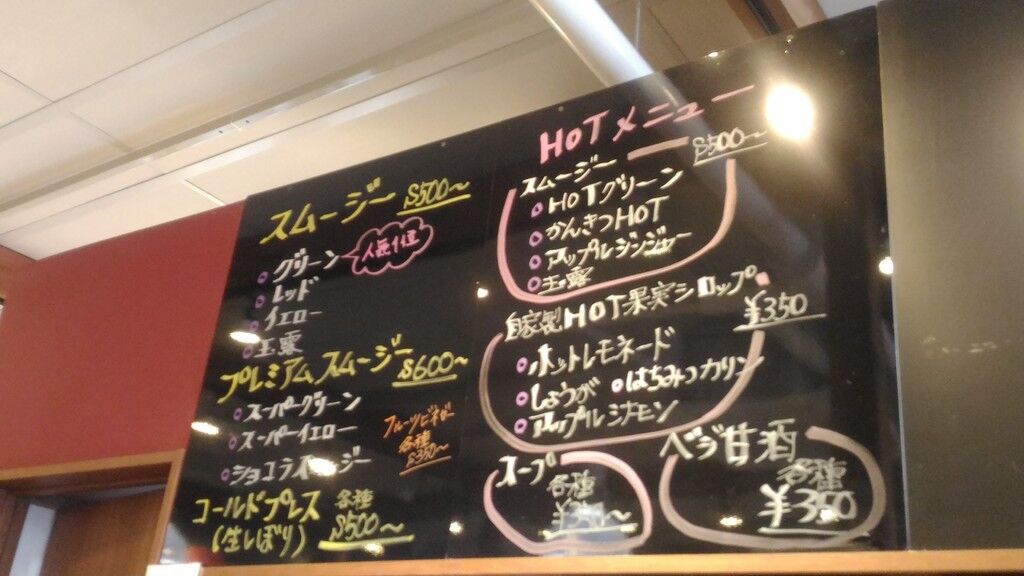 スムージー S500〜
グリーン 人気No.1
レッド
イエロー
玉露
プレミアムスムージー S600〜
スーパーグリーン
スーパーイエロー
ショコラスムージー
フルーツビネガー
各種
S350〜
コールドプレス
(生しぼり)
各種
S500〜
HOTメニュー
スムージー S500〜
HOTグリーン
かんきつHOT
アップルジンジャー
玉露
自家製HOT果実シロップ
¥350
ホットレモネード
しょうが はちみつカリン
アップルシナモン
スープ
各種
ベジ甘酒
各種
¥350